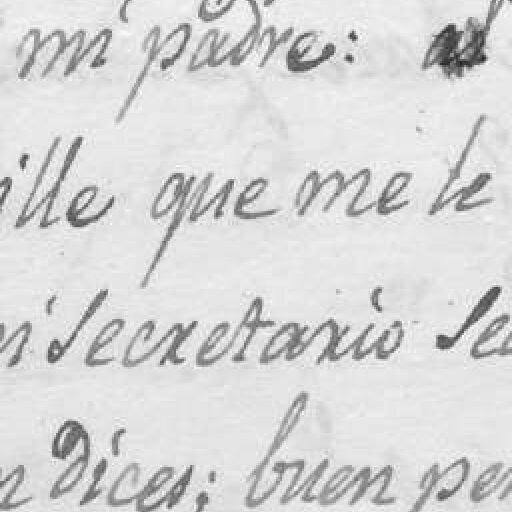 mi padre: al
ille que me le
i Secretario Se
n Dices; buen pen